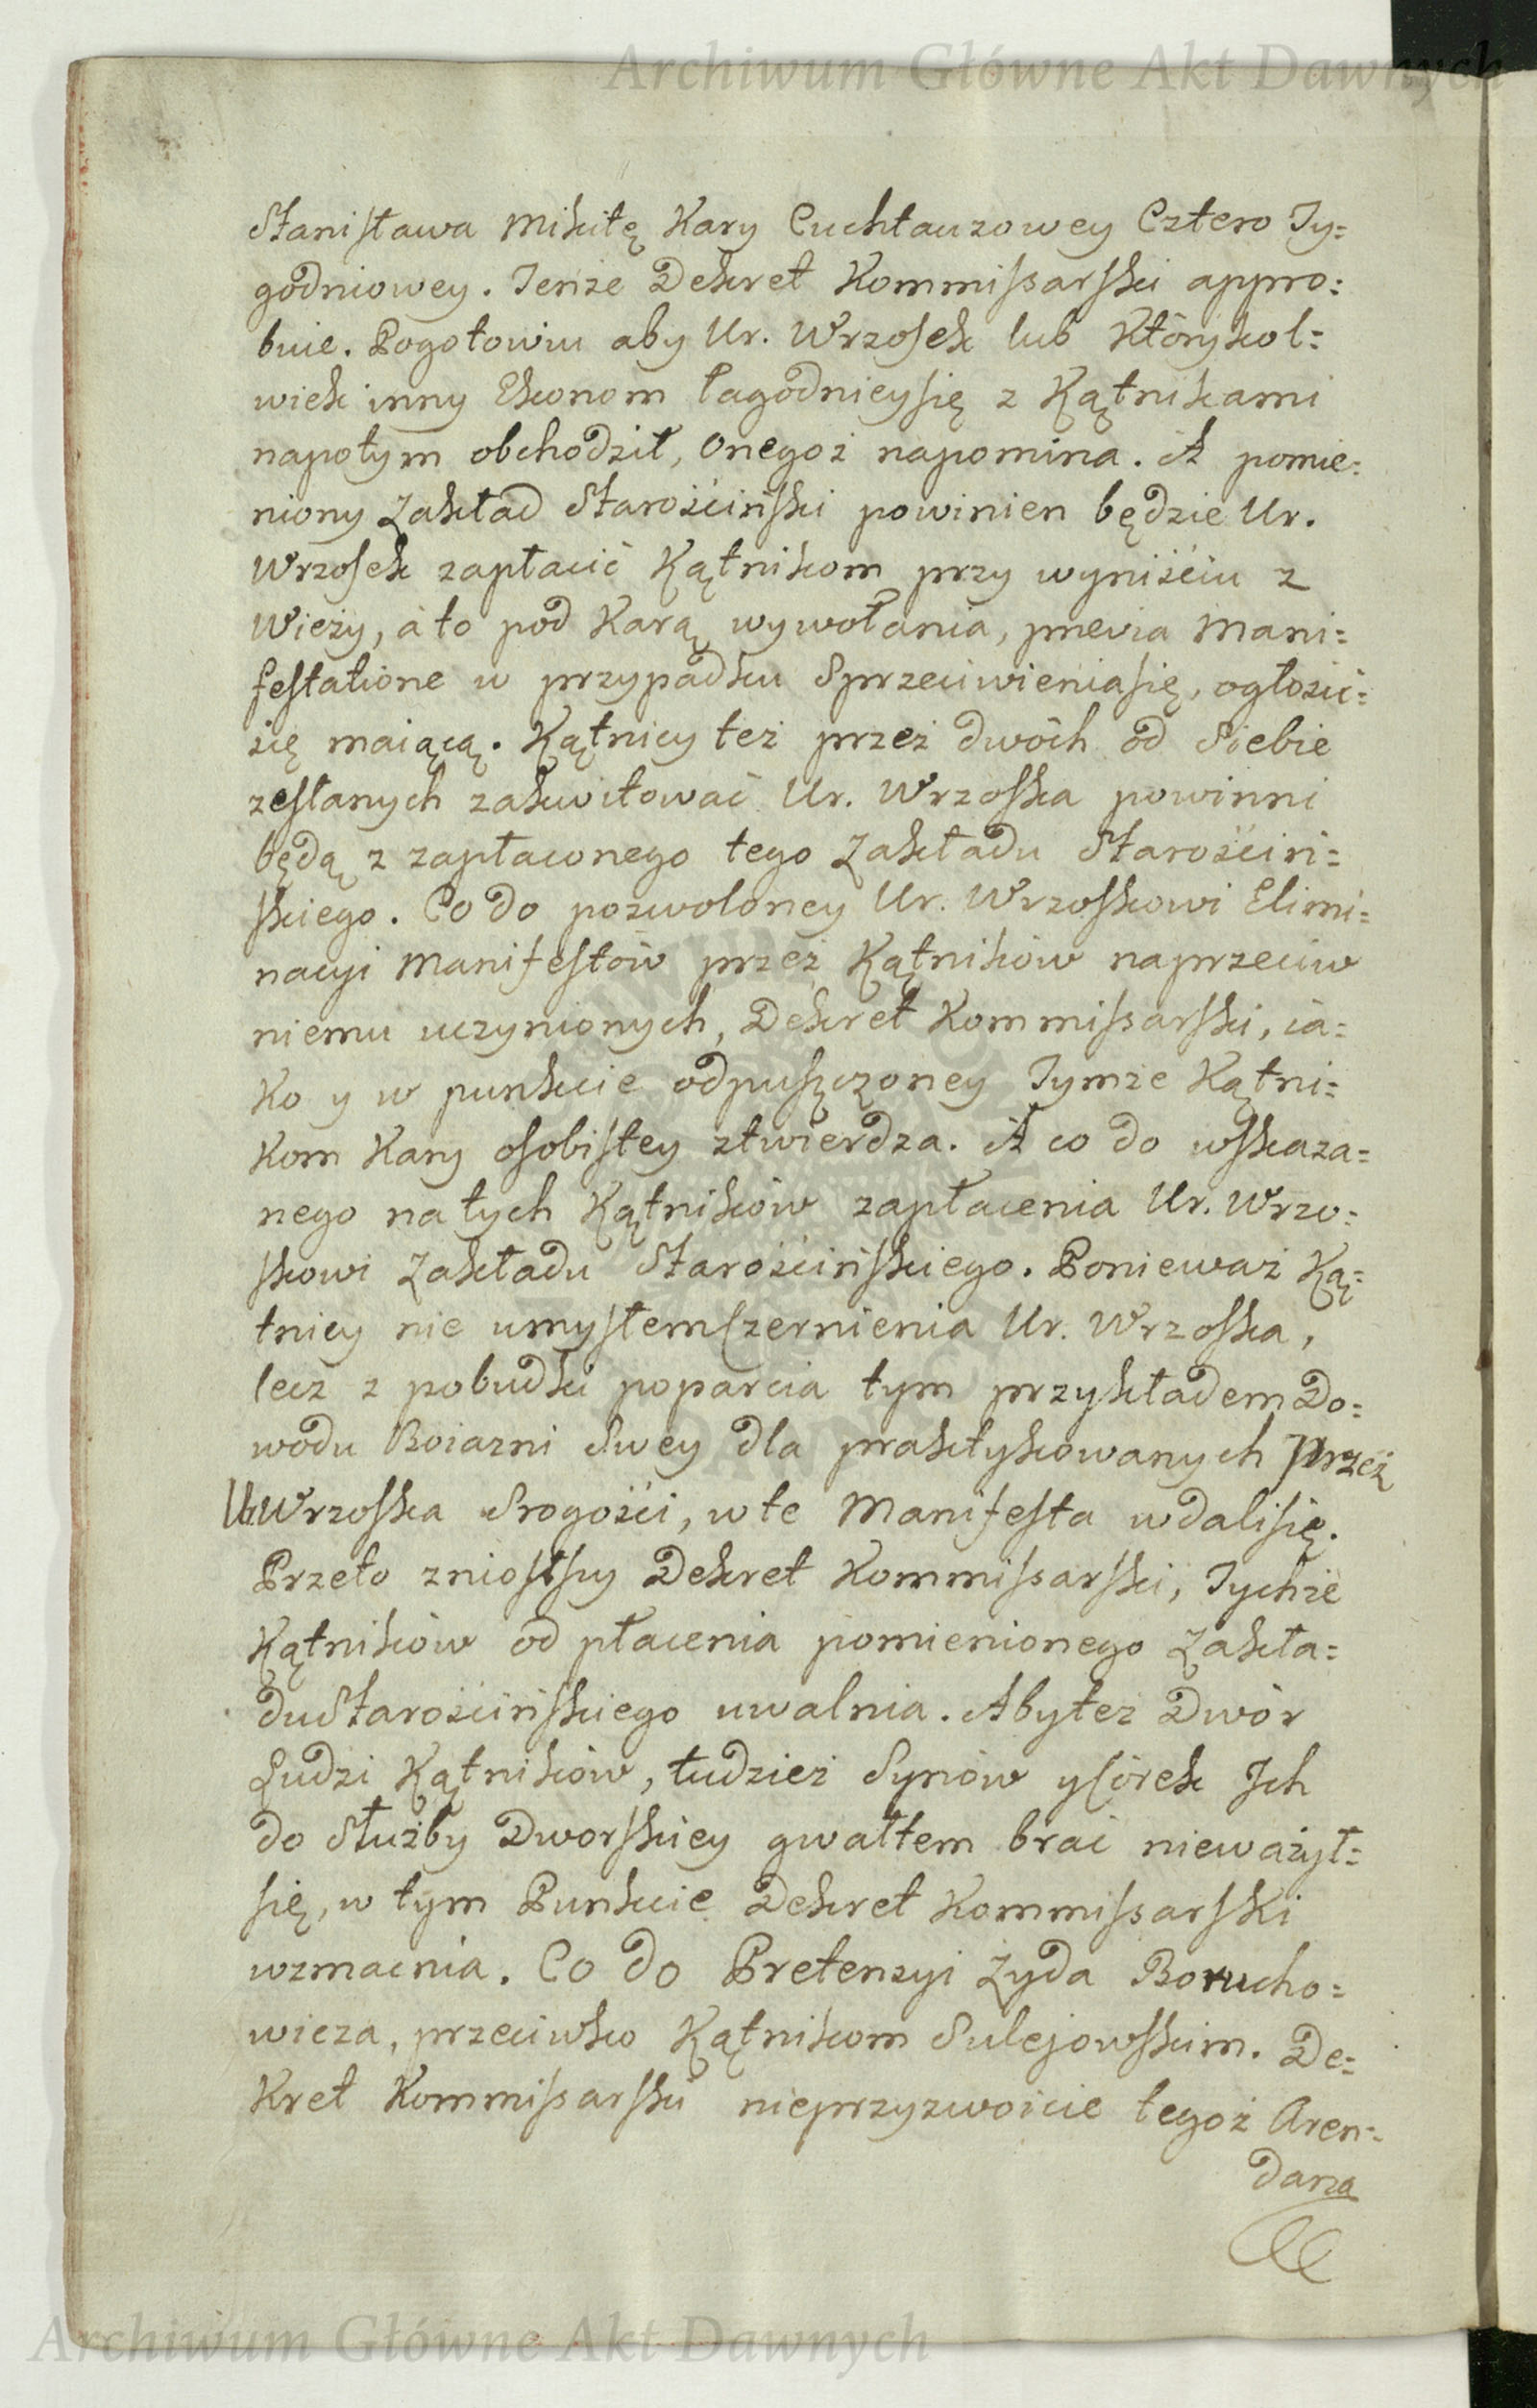 Archiwum Główne Akt Dawnych
Stanisława Mikitę Kary Cuchtauzowey Cztero Ty=
godniowey. Tenże Dekret Kommissarski appro=
buie. Pogotowiu aby Ur. Wrzosek lub Którykol=
wiek inny Ekonom łagodnieysię z Kątnikami
napotym obchodził, Onegoż napomina. A pomie=
niony Zakład Starościński powinien będzie Ur.
Wrzosek zapłacić Kątnikom przy wyniściu z
Wieży, a to pod Karą wywołania, previa Mani=
festatione w przypadku Sprzeciwieniasię, ogłosić=
się maiącą. Kątnicy też przez dwóch od Siebie
zesłanych zakwitować Ur. Wrzoska powinni
będą z zapłaconego tego Zakładu Starościń=
skiego. Co do pozwoloney Ur. Wrzoskowi Elimi=
nacyi Manifestów przez Kątników naprzeciw
niemu uczynionych, Dekret Kommissarski, ia=
ko y w punkcie odpuszczoney Tymże Kątni=
kom Kary osobistey ztwierdza. A co do wskaza=
nego na tych Kątników zapłacenia Ur. Wrzo=
skowi Zakładu Starościńskiego. Ponieważ Ką=
tnicy nie umysłem Czernienia Ur. Wrzoska,
lecz z pobudki poparcia tym przykładem Do=
wodu Boiazni Swey dla praktykowanych przez
Ur. Wrzoska Srogości, w te Manifesta wdalisię.
Przeto zniosłszy Dekret Kommissarski, Tychże
Kątników od płacenia pomienionego Zakła=
du Starościńskiego uwalnia. Abyteż Dwór
Ludzi Kątników, tudzież Synów y Córek Ich
do Służby Dworskiey gwałtem brać nieważył=
się, w tym Punkcie Dekret Kommissarski
wzmacnia. Co do Pretensyi Żyda Borucho=
wicza, przeciwko Kątnikom Sulejowskim. De=
kret Kommissarski nieprzyzwoicie tegoż Aren=
darza
Archiwum Główne Akt Dawnych